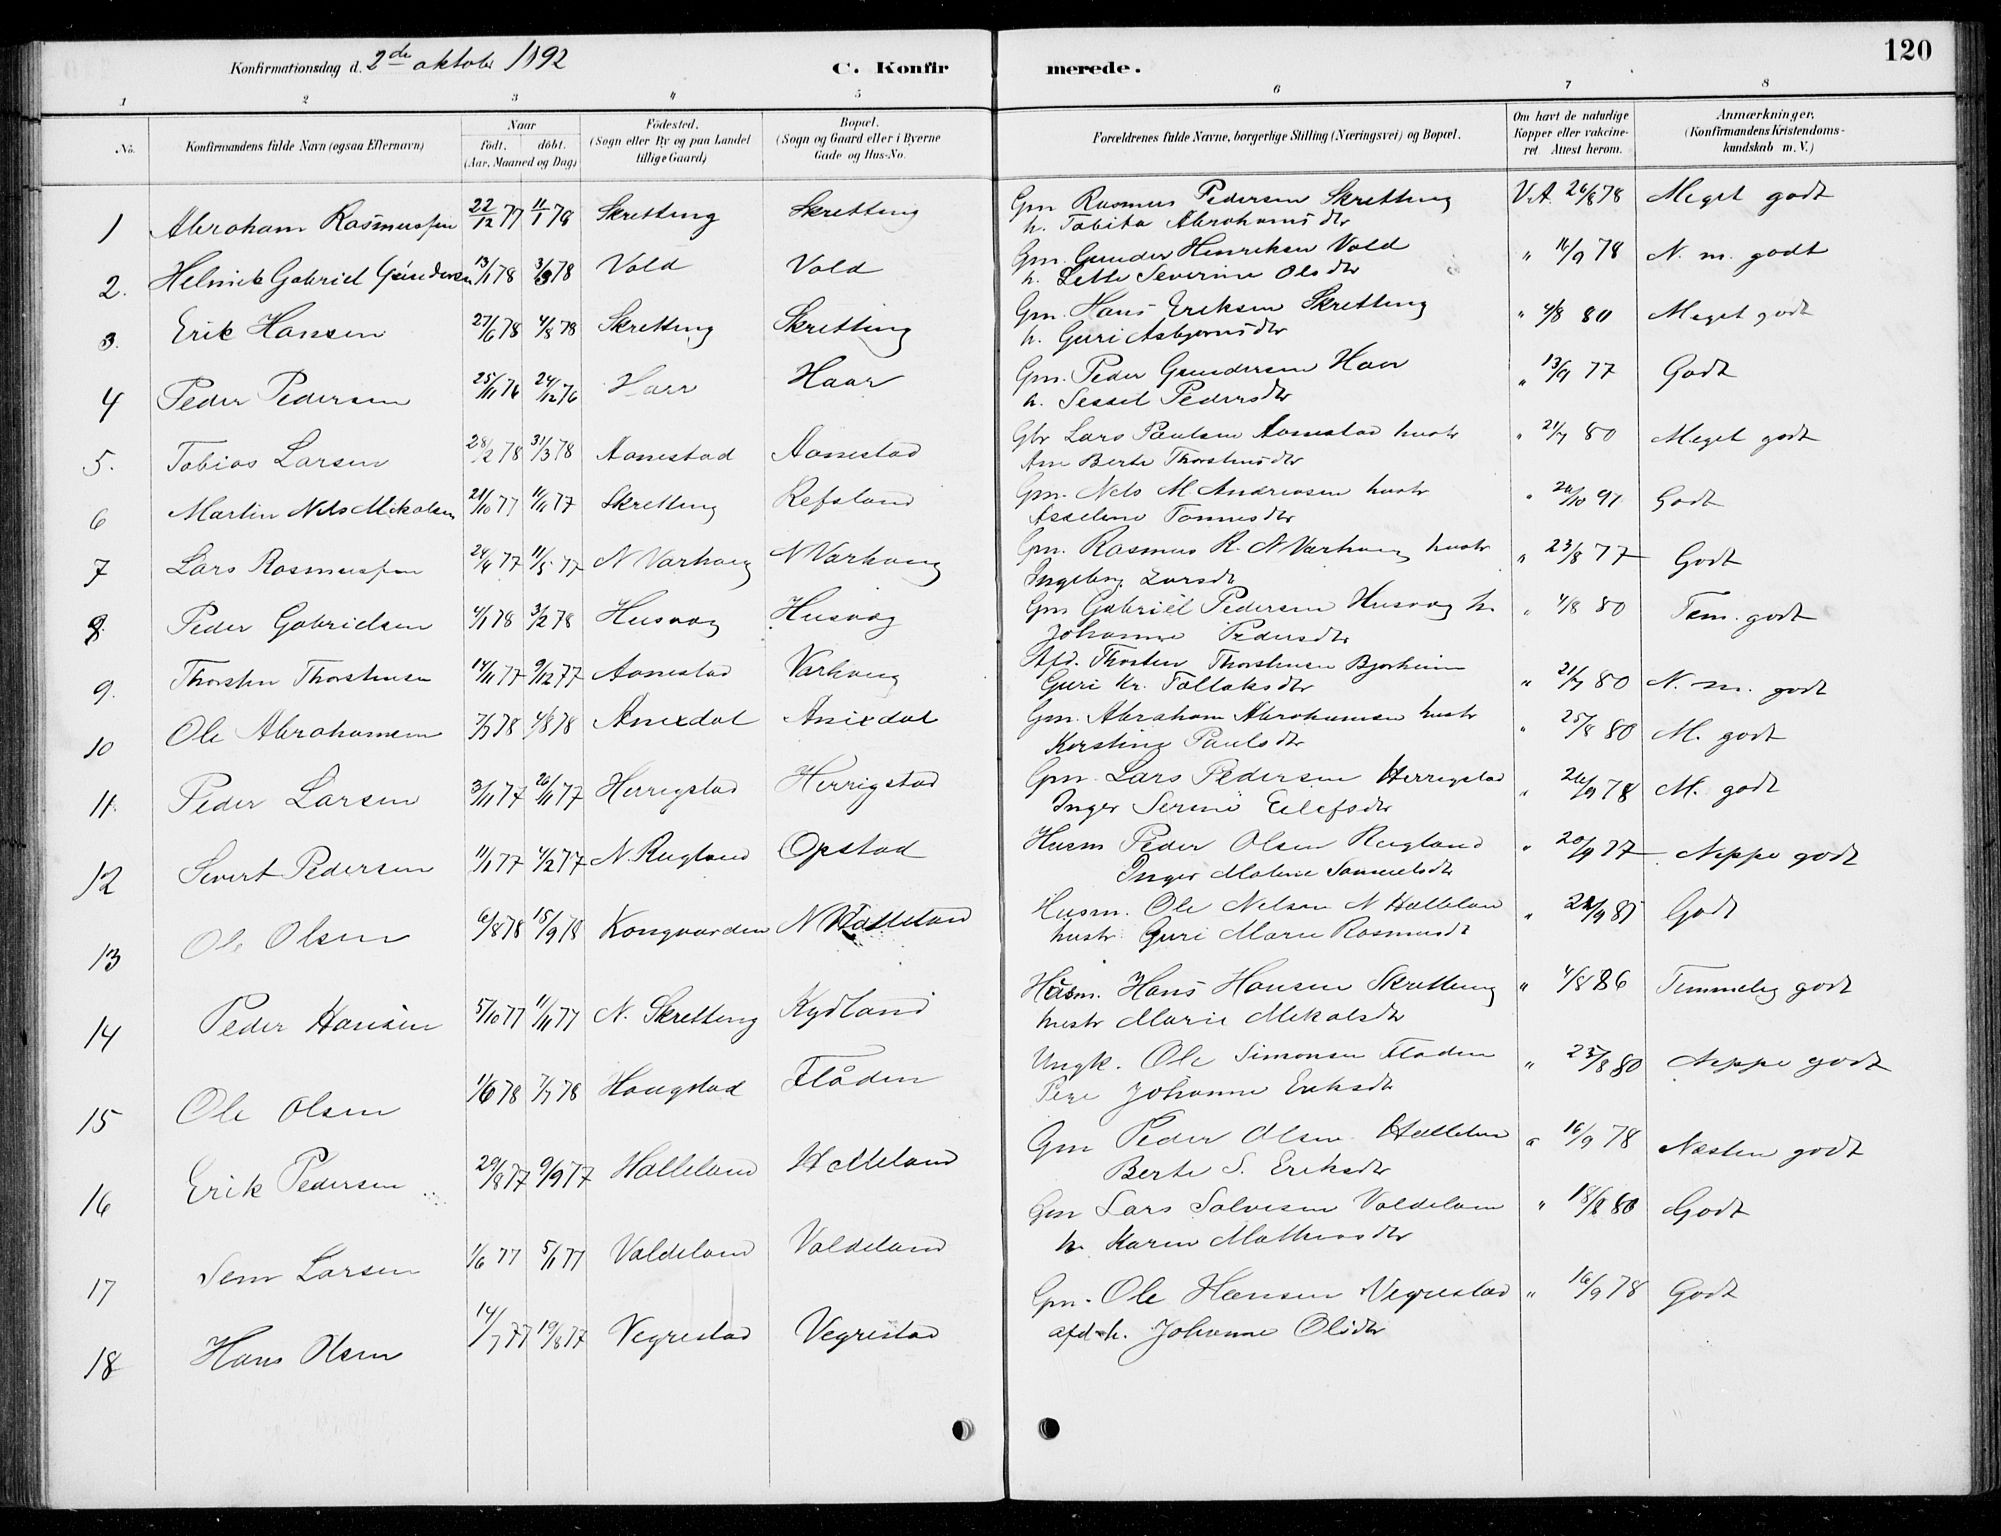 120
Konfirmationsdag d. 2de oktober 1892
C. Konfirmerede.
1 2 3 4 5 6 7 8
No.
Konfirmandens fulde Navn (ogsaa Efternavn)
Naar
født. døbt.
(Aar, Maaned og Dag)
Fødested.
(Sogn eller By og paa Landet
tillige Gaard)
Bopæl.
(Sogn og Gaard eller i Byerne
Gade og Hus-No.
Forældrenes fulde Navne, borgerlige Stilling (Næringsvei) og Bopæl.
Om havt de naturlige
Kopper eller vakcine-
ret Attest herom.
Anmærkninger.
(Konfirmandens Kristendoms-
kundskab m. V.)
1 Abraham Rasmussen 22/12 77 11/1 78 Skretting Skretting Gm Rasmus Pedersen Skretting V.A. 26/8 78 Meget godt
h. Tobita Abrahamsdtr
2. Helmik Gabriel Gundersen 13/1 78 3/3 78 Vold Vold Gm. Gunder Henriksen Vold " 16/9 78 N. m. godt
h. Lette Severine Olsdtr
3. Erik Hansen 27/6 78 4/8 78 Skretting Skretting Gm. Hans Eriksen Skretting " 4/8 80 Meget godt
h. Guri Asbjørnsdtr
4 Peder Pedersen 25/11 76 24/12 76 Haar Haar Gm. Peder Gundersen Haar " 13/9 77 Godt
h. Sessel Pedersdtr
5. Tobias Larsen 28/2 78 31/3 78 Aanestad Aanestad Gbr Lars Paulsen Aanestad hustr " 21/7 80 Meget godt
Ane Berte Thorstensdtr
6 Martin Nels Mikalsen 21/10 77 11/11 77 Skretting Refsland Gm. Nels M. Andreasen hustr " 26/10 91 Godt
Asseline Tønnesdtr
7 Lars Rasmussen 24/4 77 11/5 77 N Varhaug N Varhaug Gm. Rasmus R. N Varhaug hustr " 23/8 77 Godt
Ingeborg Larsdtr
8. Peder Gabrielsen 4/1 78 3/2 78 Husvæg Husvæg Gm Gabriel Pedersen Husvæg h. " 4/8 80 Tem. godt
Johanne Pedersdtr
9. Thorsten Thorstensen 14/11 77 9/12 77 Aanestad Varhaug Afd. Thosten Thorstensen Bjorheim " 21/7 80 N. m. godt
Guri Kr. Tollaksdtr
10 Ole Abrahamsen 7/7 78 4/8 78 Anixdal Anixdal Gm. Abraham Abrahamsen hustr " 25/8 80 M. godt
Kerstine Paulsdtr
11. Peder Larsen 3/11 77 26/11 77 Herrigstad Herrigstad Gm. Lars Pedersen Herrigstad " 26/9 78 M. godt
Inger Serine Eilefsdtr
12 Sivert Pedersen 11/1 77 4/2 77 N. Rugland Opstad Husm Peder Olsen Rugland " 20/9 77 Neppe godt
Inger Malene Samuelsdtr
13 Ole Olsen 6/8 78 15/9 78 Kongvarden N Hatleland Husm. Ole Nelsen N Hatleland " 22/9 85 Godt
hustr Guri Marie Rasmusdt
14 Peder Hansen 5/10 77 11/11 77 N. Skretting Kydland Husm. Hans Hansen Skretting " 4/8 86 Temmelig godt
hustr Marie Mikalsdtr
15 Ole Olsen 1/6 78 7/7 78 Haugstad Flåden Ungk. Ole Simonsen Fladen " 25/8 80 Neppe godt
Pige Johanne Eriksdtr
16 Erik Pedersen 29/8 77 9/9 77 Hatleland Hatleland Gm Peder Olsen Hatleland " 16/9 78 Næsten godt
Berte S. Eriksdtr
17 Sem Larsen 1/6 77 5/1 77 Valdeland Valdeland Gm Lars Salvesen Valdeland " 18/8 80 Godt
h. Karen Mathiasdtr
18 Hans Olsen 14/7 77 19/8 77 Vegrestad Vegrestad Gm. Ole Hansen Vegrestad " 16/9 78 Godt
afd. h. Johanne Olsdtr